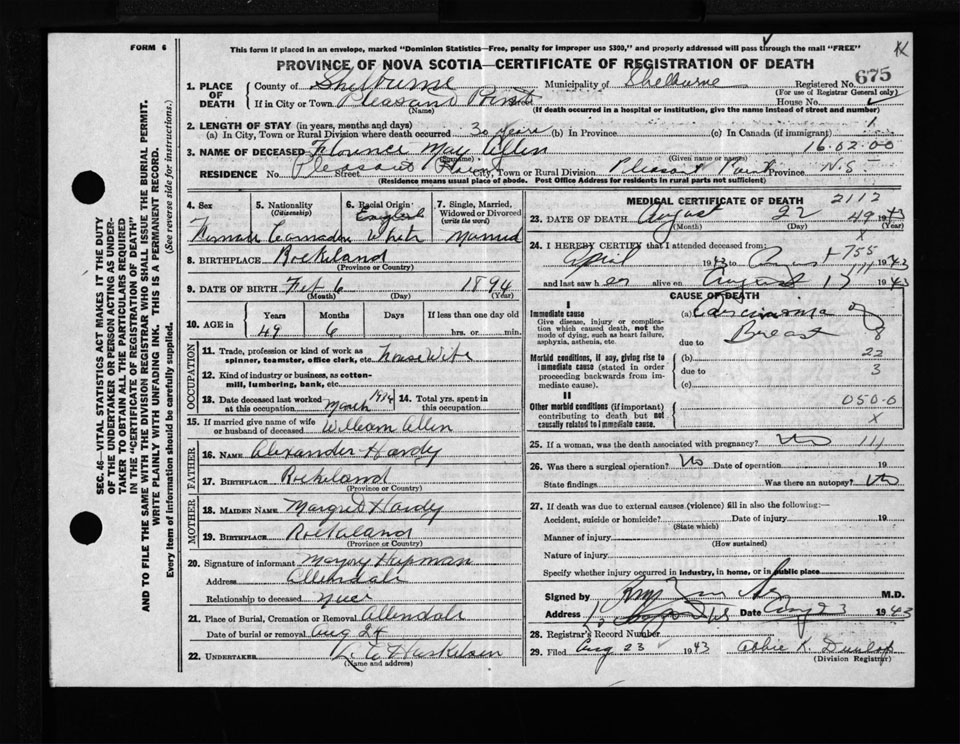 FORM 6
This form if placed in an envelope, marked "Dominion Statistics—Free, penalty for improper use $300," and properly addressed will pass through the mail "FREE"
PROVINCE OF NOVA SCOTIA—CERTIFICATE OF REGISTRATION OF DEATH
675
1. PLACE OF DEATH
County of Shelburne Municipality of Shelburne Registered No.
(For use of Registrar General only)
If in City or Town Pleasant Point House No.
(Name) (If death occurred in a hospital or institution, give the name instead of street and number)
2. LENGTH OF STAY (in years, months and days)
(a) In City, Town or Rural Division where death occurred 30 years (b) In Province (c) In Canada (if immigrant) 1
3. NAME OF DECEASED Florence May Allen 16.02.00
(Surname) (Given name or names)
RESIDENCE No. Pleasant Street City, Town or Rural Division Pleasant Point Province N.S
(Residence means usual place of abode. Post Office Address for residents in rural parts not sufficient)
SEC. 46—VITAL STATISTICS ACT MAKES IT THE DUTY
OF THE UNDERTAKER OR PERSON ACTING AS UNDER-
TAKER TO OBTAIN ALL THE PARTICULARS REQUIRED
IN THE "CERTIFICATE OF REGISTRATION OF DEATH"
AND TO FILE THE SAME WITH THE DIVISION REGISTRAR WHO SHALL ISSUE THE BURIAL PERMIT.
WRITE PLAINLY WITH UNFADING INK. THIS IS A PERMANENT RECORD.
Every item of information should be carefully supplied. (See reverse side for instructions.)
4. Sex
Female
5. Nationality
(Citizenship)
Canadian
6. Racial Origin
English
White
7. Single, Married, Widowed or Divorced
(write the word)
Married
8. BIRTHPLACE Rockeland
(Province or Country)
9. DATE OF BIRTH Feb 6 1894
(Month) (Day) (Year)
10. AGE in Years Months Days If less than one day old
49 6 hrs. or min.
OCCUPATION
11. Trade, profession or kind of work as spinner, teamster, office clerk, etc. House Wife
12. Kind of industry or business, as cotton-mill, lumbering, bank, etc.
13. Date deceased last worked at this occupation March 14. Total yrs. spent in this occupation
15. If married give name of wife or husband of deceased William Allen
FATHER
16. NAME Alexander Hardy
17. BIRTHPLACE Rockeland
(Province or Country)
MOTHER
18. MAIDEN NAME Margret Hardy
19. BIRTHPLACE Rockeland
(Province or Country)
20. Signature of informant Hapman
Address Allendale
Relationship to deceased
21. Place of Burial, Cremation or Removal Allendale
Date of burial or removal Aug 24
22. UNDERTAKER
(Name and address)
MEDICAL CERTIFICATE OF DEATH 2112
23. DATE OF DEATH August 22 49 1943
(Month) (Day) (Year)
X
24. I HEREBY CERTIFY that I attended deceased from: 755
April 1943 to August 1943
and last saw her alive on August 1943
CAUSE OF DEATH
I
Immediate cause
Give disease, injury or complication which caused death, not the mode of dying, such as heart failure, asphyxia, asthenia, etc.
(a) Carcinoma of
Breast 8
due to
Morbid conditions, if any, giving rise to immediate cause (stated in order proceeding backwards from immediate cause).
(b) 22
due to 3
(c)
II
Other morbid conditions (if important) contributing to death but not causally related to immediate cause.
050.0
X
25. If a woman, was the death associated with pregnancy? No 111
26. Was there a surgical operation? No Date of operation 19
State findings Was there an autopsy? No
27. If death was due to external causes (violence) fill in also the following:—
Accident, suicide or homicide? Date of injury 19
(State which)
Manner of injury
(How sustained)
Nature of injury
Specify whether injury occurred in industry, in home, or in public place
Signed by M.D.
Address Date Aug 23 1943
28. Registrar's Record Number
29. Filed Aug 23 1943 Abbie K. Dunlop
(Division Registrar)